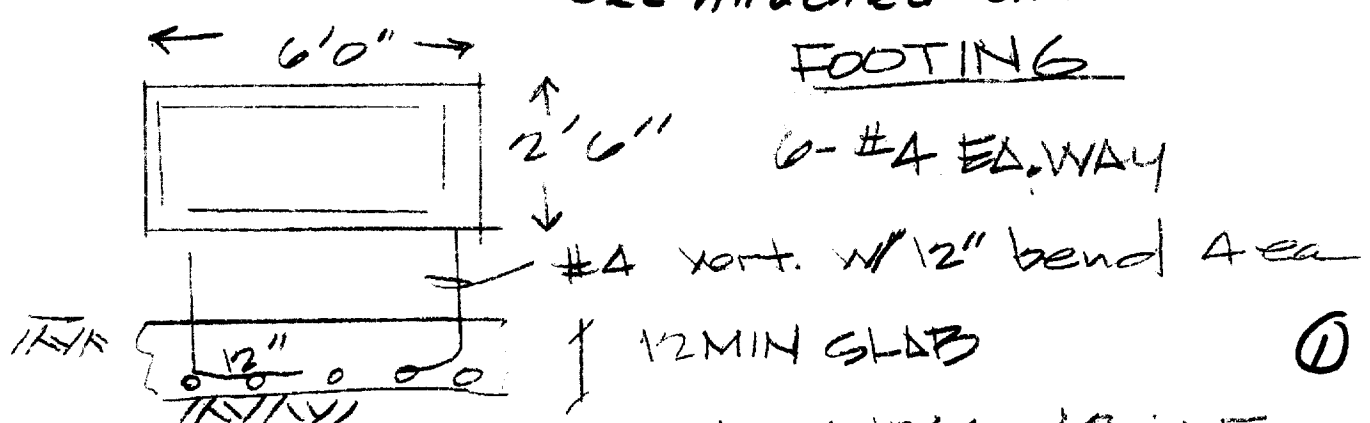 See Attached
6'0"
FOOTING
2'6"
6-#4 EA. WAY
#4 vert. w/12" bend 4 ea
12"
12 MIN SLAB
1